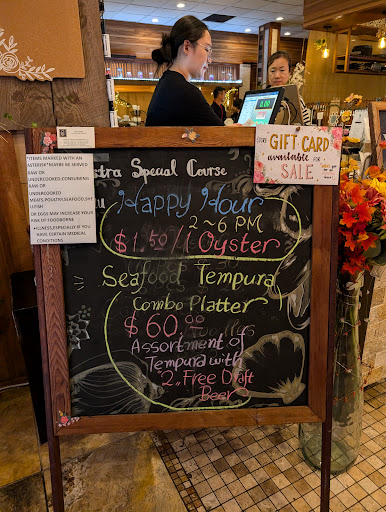 *ITEMS MARKED WITH AN
ASTERISK*MAYBE BE SERVED
RAW OR
UNDERCOOKED.CONSUMING
RAW OR
UNDERCOOKED
MEATS,POULTRY,SEAFOOD,SHE
LLFISH
OR EGGS MAY INCREASE YOUR
RISK OF FOODBORNE
•ILLNESS,ESPECIALLY IF YOU
HAVE CERTAIN MEDICAL
CONDITIONS
GIFT CARD
available for
SALE
stra Special Course
Happy Hour
2~6 PM
$1.50/1 Oyster
Seafood Tempura
Combo Platter
$60.00
Assortment of
Tempura with
"2" Free Draft
Beer